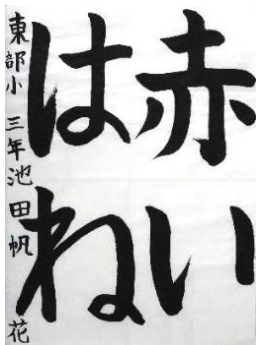 赤い
はね
東部小 三年 池田帆花